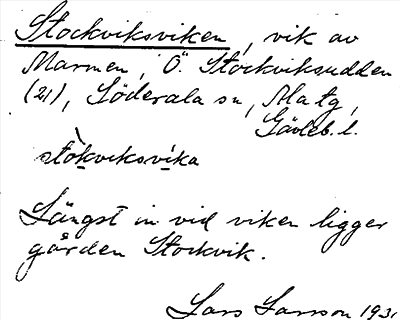 Stockviksviken, vik av
Marmen, Ö. Stockviksudden
(21), Söderala sn, Ma tg,
Gävleb. l.
stòkviksvika
Längst in vid viken ligger
gården Stockvik.
Lars Larsson 1931